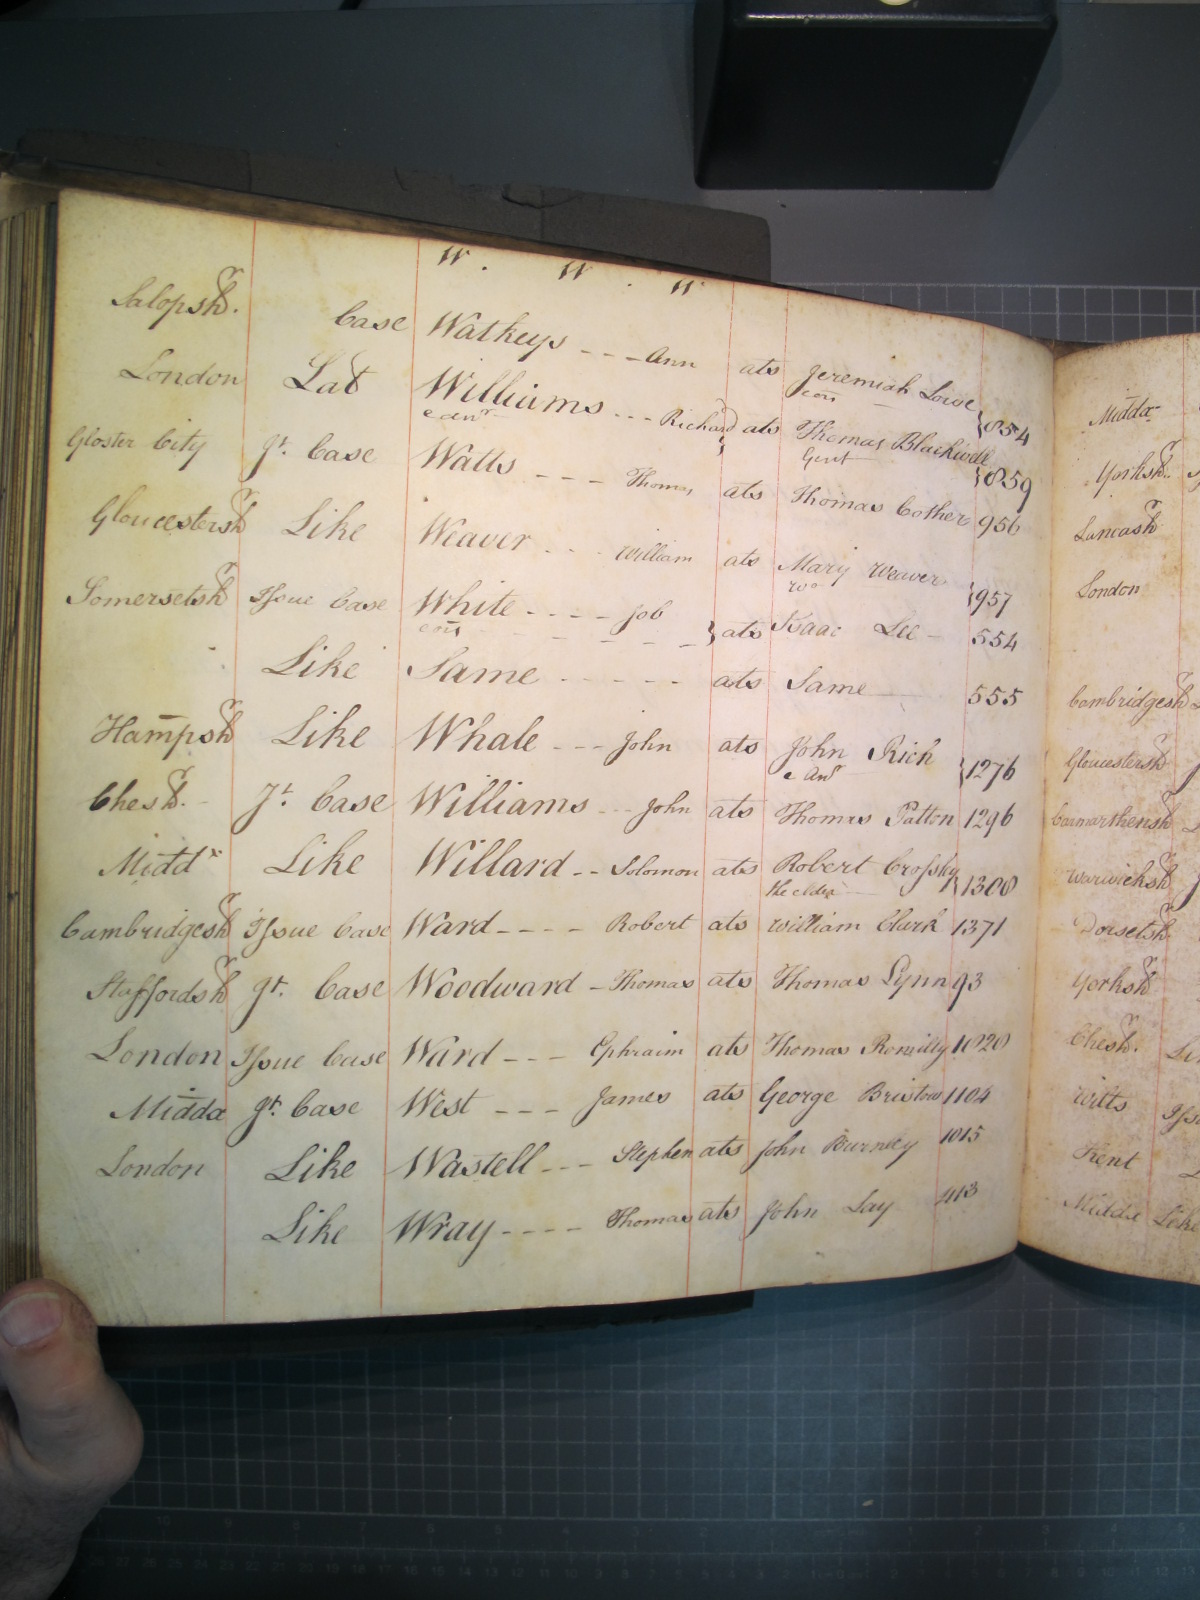 W. W. W
Salopshr. Case Watkeys --- Ann ats Jeremiah Lowe 854
London Lat Williams --- Richard ats Thomas Blackwell 859
Gent
Gloster City Jt. Case Watts --- Thomas ats Thomas Cother 956
Gloucestershr Like Weaver --- William ats Mary Weaver 957
wo
Somersetshr Issue Case White ---- Job ats Isaac Lee 554
Like Same ----- ats Same 555
Hampshr Like Whale --- John ats John Rich 1276
& anr
Cheshr. Jt. Case Williams -- John ats Thomas Patton 1296
Middx Like Willard -- Solomon ats Robert 1300
the elder
Cambridgeshr Issue Case Ward ---- Robert ats William Clark 1371
Staffordshr Jt. Case Woodward - Thomas ats Thomas Lynn 93
London Issue Case Ward --- Ephraim ats Thomas Romilly 1020
Middx Jt. Case West --- James ats George Bristow 1104
London Like Wastell --- Stephen ats John Burnley 1015
Like Wray ---- Thomas ats John Lay 413
Middx
Yorkshr.
Lancashr
London
Cambridgeshr
Gloucestershr
Carmarthenshr
Warwickshr
Dorsetshr
Yorkshr
Cheshr.
Wilts
Kent
Middx Like